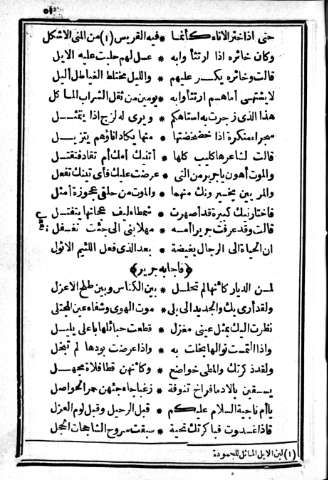 حتى اذا خثر الاناء كأنما * فيه القريس (١) من المنى الاشكل
وكأن خاثره اذا ارتثأوا به * عسل لهم حلبت عليه الايل
قالت وخاثره يكر عليهم * والليل مختلط الغياطل أليل
لا يشتهى أماهم ارتثأوا به * يومين من ثقل الشراب المأكل
هذا الذى زجرت به استاهكم * ويرى له لزج اذا يتمثل
صحراء منكرة اذا خضخضتها * منها يكاد اناؤهم يتزيل
قالت لشاعرها كليب كلها * أتنيك أمك أم تقاد فتقتل
والموت أهون يا جرير من التى * عرضت عليك فأى تينك تفعل
والمر بين يخير ونك منهما * والموت من حلقى عجوزة أمثل
فاختار نيك كبيرة قد أصهرت * شمطاء ليف عجانها ينفتل
قالت وقد عرفت جرير أمه * مهلا بنى الى جئت تغفل
ان الحياة الى الرجال بغيضة * بعد الذى فعل اللئيم الاثول
﴿فأجابه جرير﴾
لمن الديار كأنها لم تحلل * بين الكناس وبين طلح الاعزل
ولقد أرى بك والجديد الى بلى * موت الهوى وشفاء عين المجتلى
نظرت اليك بمثل عينى مغزل * قطعت حبائلها بأعلى يليل
واذا التمست نوالها بخلت به * واذا عرضت بودها لم تبخل
ولقد ذكرتك والمطى خواضع * وكأنهن قطا فلاة مجهل
يسقين بالادمى فراخ تنوفة * زغبا جآجئهن حمر الحواصل
يا أم ناجية السلام عليكم * قبل الرحيل وقبل لوم العزل
فاذا غدوت فباكرتك تحية * سبقت سروح الشاحجات الحجل
(١) لبن الايل المائل للحمودة